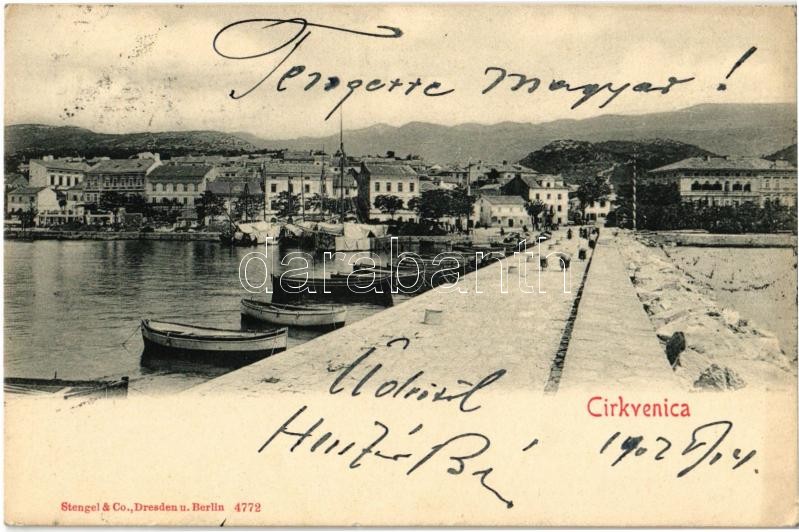 Tengerre Magyar!
darabanth
Üdvözöl
Cirkvenica
1902 V/14.
Stengel & Co., Dresden u. Berlin 4772